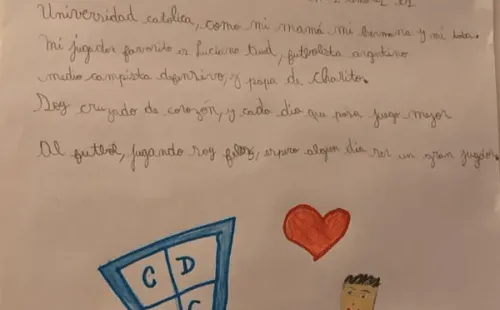 Universidad católica, como mi mamá mi hermana y mi tata.
Mi jugador favorito es Luciano Aued, futbolista argentino
medio campista defensivo, y papa de Charito.
Soy cruzado de corazón, y cada dia que pasa juego mejor
Al futbol, jugando soy feliz, espero algun dia ser un gran jugador.
C D
C